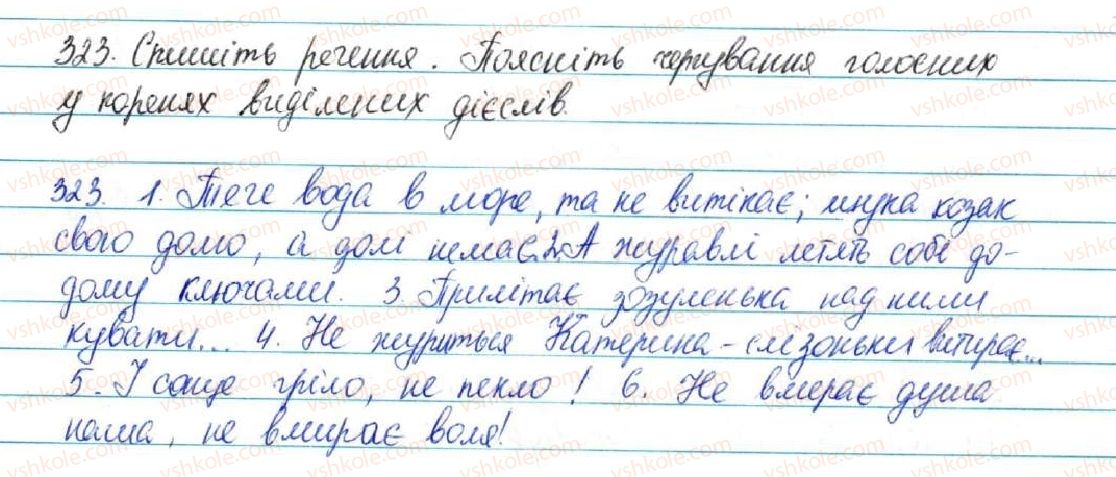 323. Спишіть речення. Поясніть чергування голосних
у коренях виділених дієслів.
323. 1. Тече вода в море, та не витікає; шука козак
свого домо, а долі немає. 2. А журавлі летять собі до-
дому ключами. 3. Прилітає зозуленька над ними
кувати... 4. Не журиться Катерина - слізоньки витирає...
5. І сонце гріло, не пекло! 6. Не вмирає душа
наша, не вмирає воля!